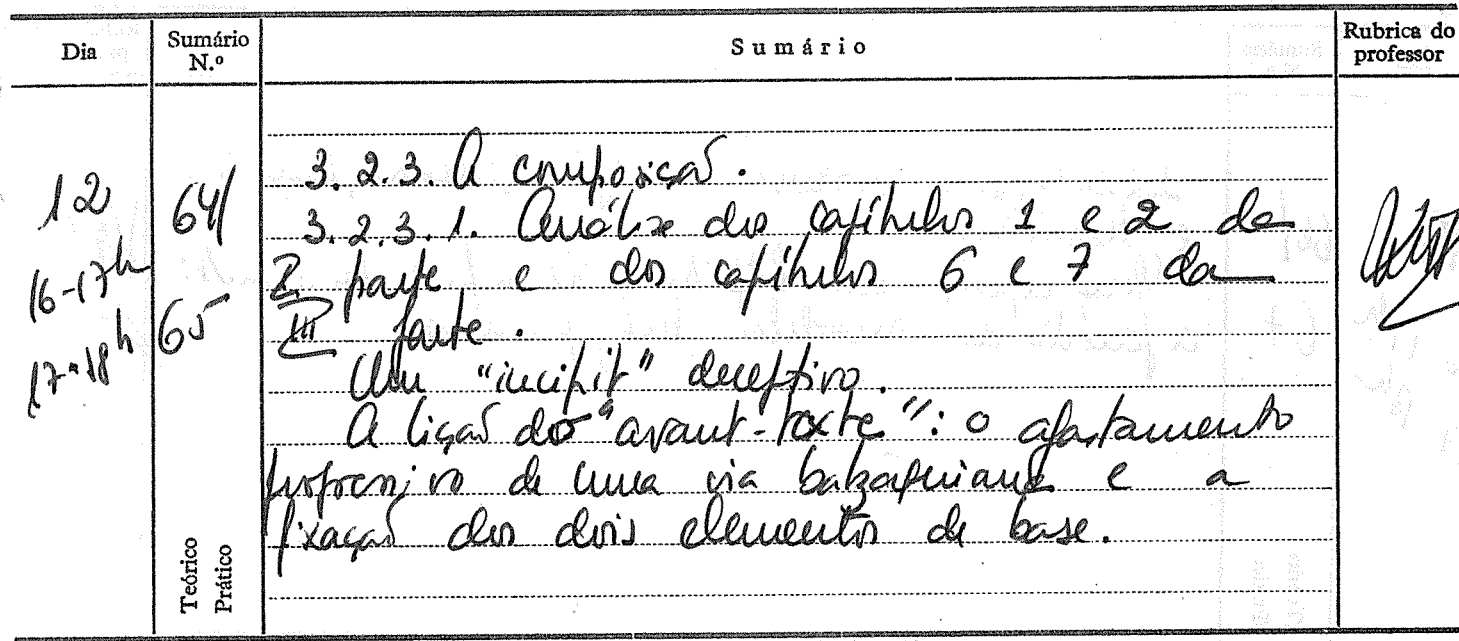 Dia
Sumário N.º
Sumário
Rubrica do professor
12
16-17h
17-18h
64/
65
3.2.3. A composição.
3.2.3.1. Análise dos capítulos 1 e 2 da
I parte e dos capítulos 6 e 7 da
III parte.
Um "incipit" deceptivo.
A lição do "avant-texte": o afastamento
progressivo de uma via balzaquiana e a
fixação dos dois elementos de base.
Teórico
Prático